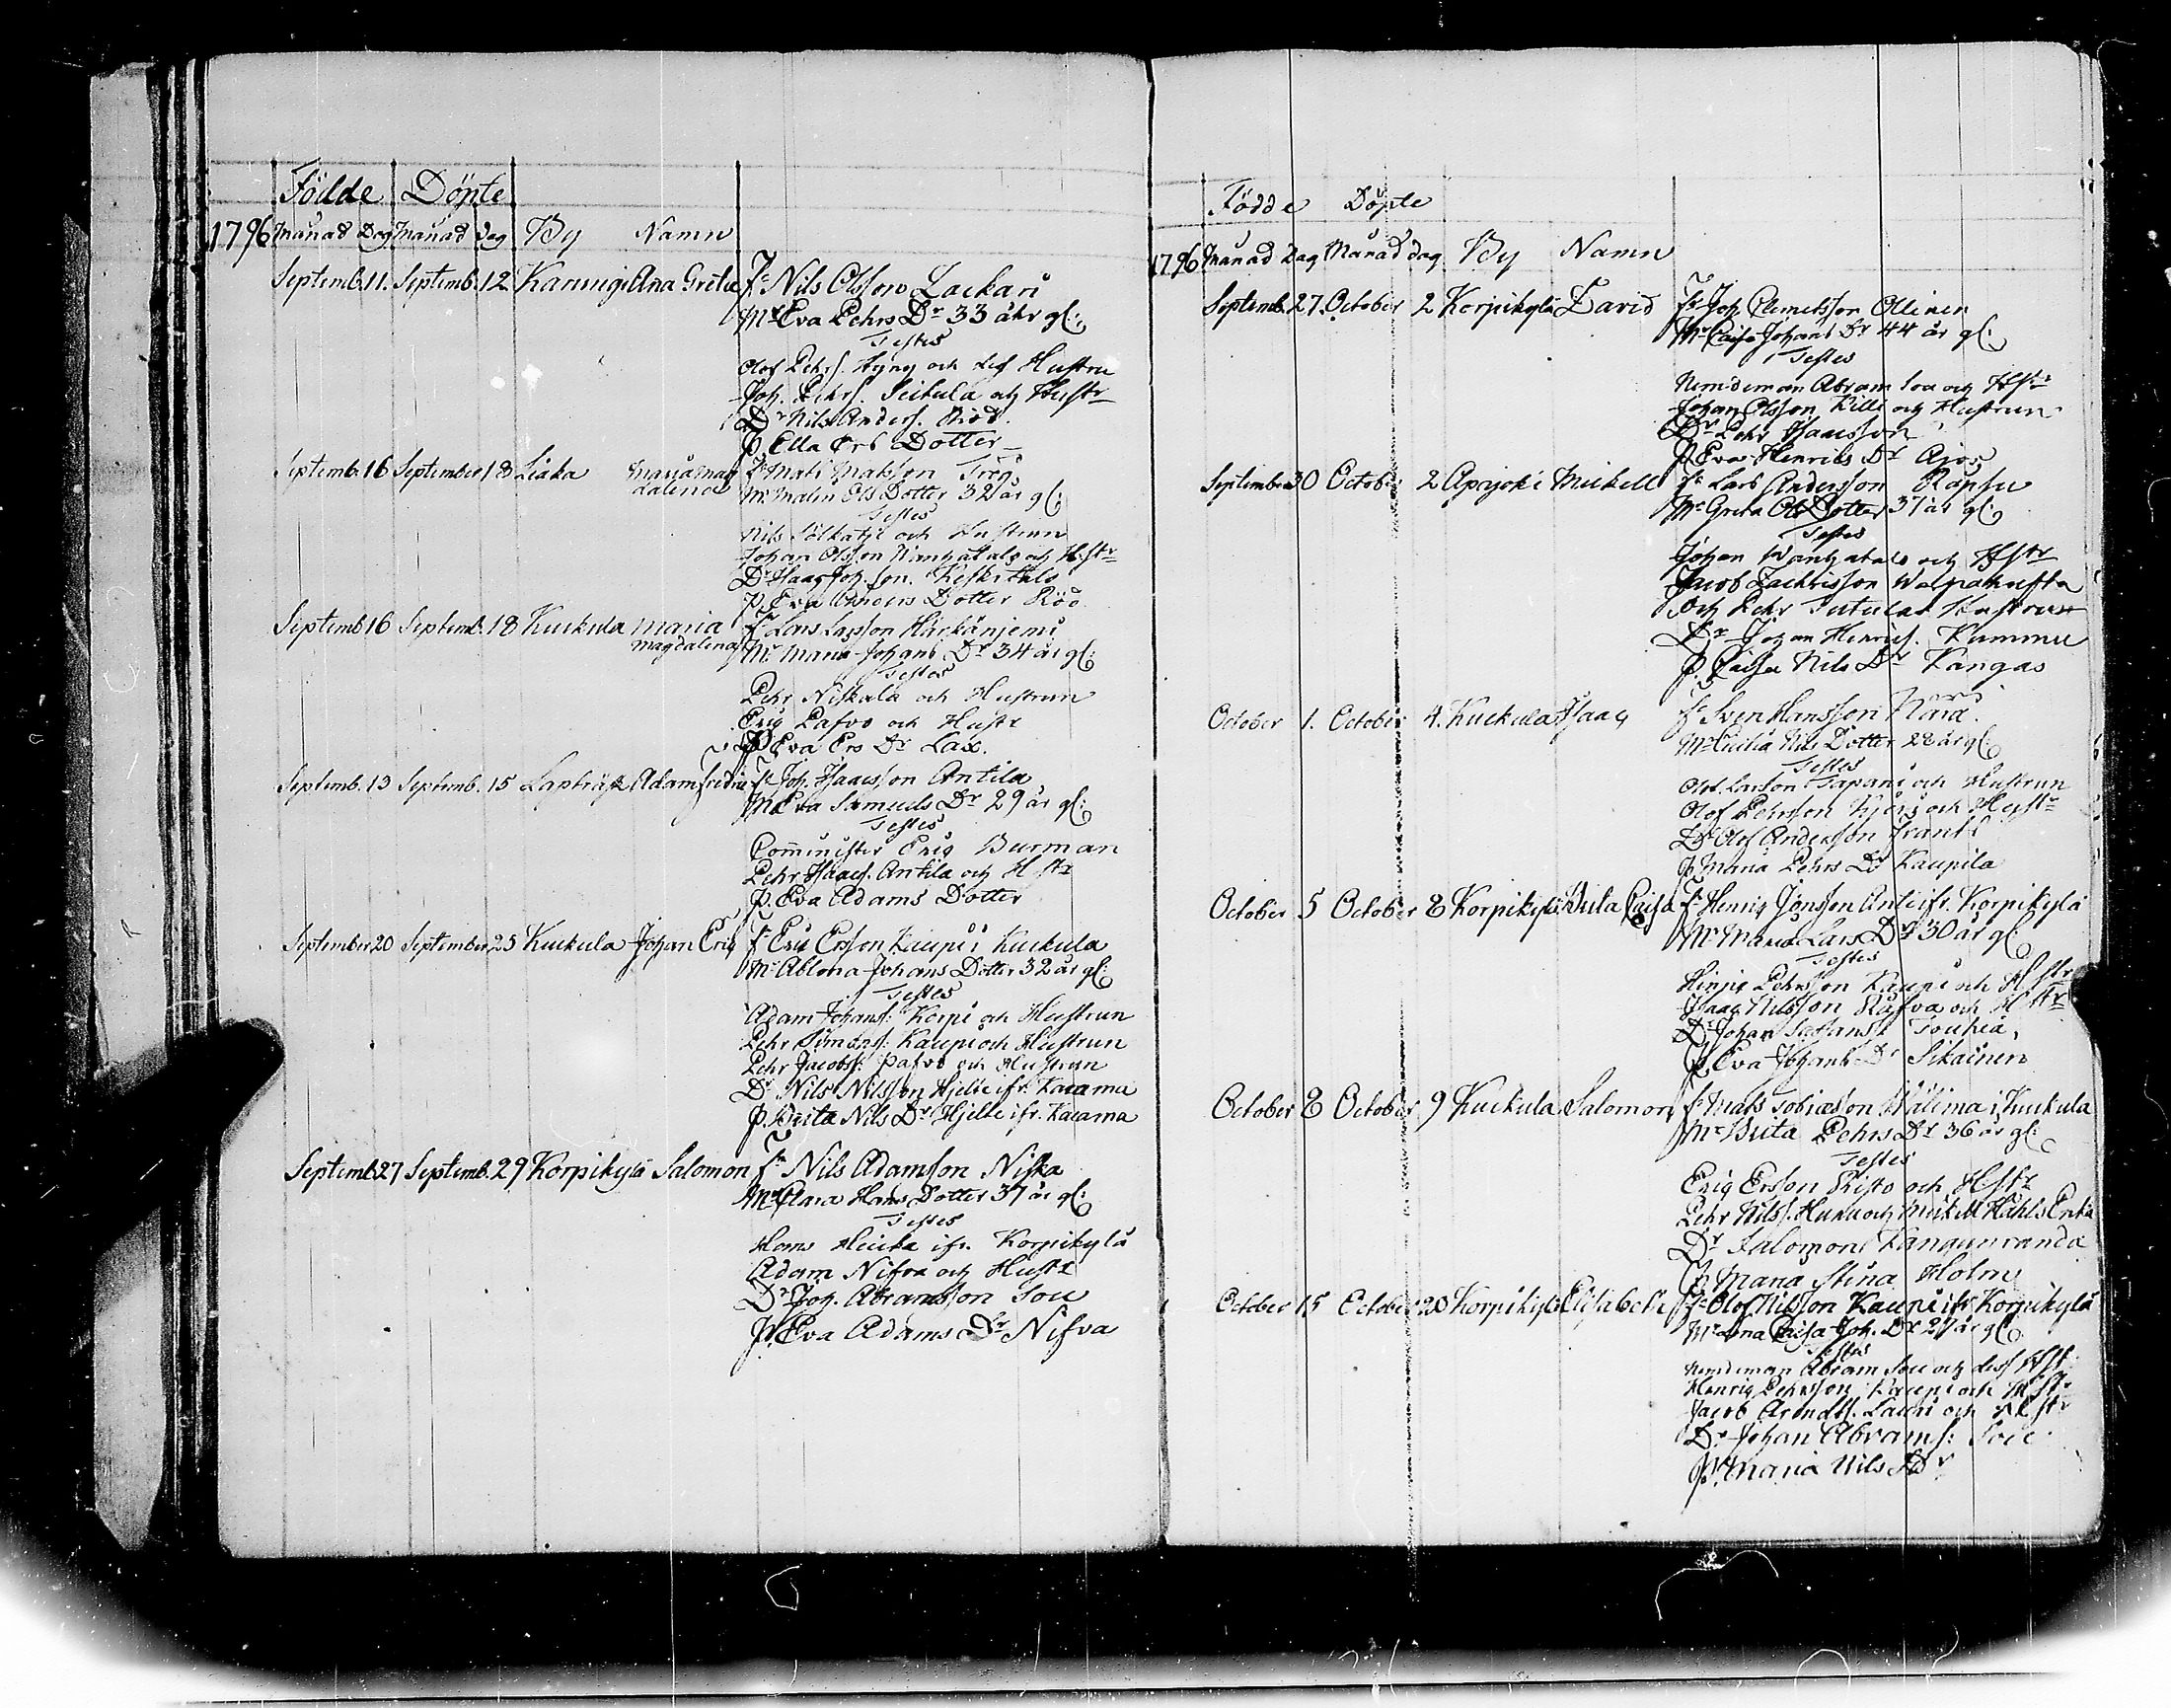 Födde Döpte
1796 Månad Dag Månad dag By Namn
Septemb. 11. Septemb. 12 Karungi Ana Greta Fr Nils Olsson Lackari
Mr Eva Pehrs Dr 33 åhr gl:
Testes
Olof Pehrs. och des Hustru
Joh. Pehrs. Seikula och Hustr
Dr Nils Anders. Röd.
P. Ella Ers Dotter
Septemb. 16 September 18 Liaka Maria Mag
dalena
Fr Mats Matsson
Mr Malin Ols Dotter 32 år gl:
Testes
Nils och Hustrun
Johan Olsson och H:str
Dr Isaac Joh.son. Keskitalo
P. Eva Anders Dotter Röd
Septemb 16 Septemb. 18 Kuckula Maria
Magdalena
Fr Lars Larsson
Mr Maria Johans Dr 34 år gl:
Testes
Pehr Niskala och Hustrun
Eriq Pafvo och Hustr
P Eva Ers Dr Lax.
Septemb. 13 Septemb. 15 Lapträsk Adam Fredric Fr Joh. Isacsson Antila
Mr Eva Samuels Dr 29 år gl:
Testes
Comminister Eriq Burman
Pehr Isacs. Antila och H str
P. Eva Adams Dotter
September 20 September 25 Kuckula Johan Eriq Fr Eriq Ersson Kaupi i Kuckula
Mr Ablona Johans Dotter 32 år gl:
Testes
Adam Johans: Korpi och Hustrun
Pehr Simons: Kaupi och Hustrun
Pehr Jacobs: Pafvo och Hustrun
Dr Nils Nilsson Hjelte ifr. Kaiama
P. Brita Nils Dr Hjelte ifr. Kaiama
Septemb. 27 Septemb. 29 Korpikylä Salomon Fr Nils Adamsson Niska
Mr Clara Hans Dotter 37 år gl:
Testes
Hans ifr. Korpikylä
Adam Nifva och Hustr
Dr Joh. Abramsson Sou
P. Eva Adams Dr Nifva
Födde Döpte
1796 Månad Dag Månad dag By Namn
Septemb. 27. October 2 Korpikylä David Fr Joh Clemetsson Ollinen
Mr Caisa Johans Dr 44 år gl:
Testes
Nemdeman Abram Sou och H:str
Johan Olsson Killi och Hustrun
Dr Pehr Isacsson
P. Eva Henriks Dr Ajos
September 30 October 2 Apajoki Mickell Fr Lars Andersson
Mr Greta Ols Dotter 37 år gl:
Testes
Johan och Hstr
Jacob Zachrisson
Och Pehr Hustrun
Dr Johan Henrics. Kummu
P. Caisa Nils Dr Kangas
October 1. October 4. Kuckula Isaaq Fr Sven Hansson Nara.
Mr Cecilia Nils Dotter 28 år gl:
Testes
Olof Larsson Tapani och Hustrun
Olof Pehrsson och Hustr
Dr Olof Andersson Franti
P. Maria Pehrs Dr Kaupila
October 5 October 8 Korpikylä Brita Caisa Fr Henriq Jönsson Anti ifr. Korpikylä
Mr Maria Lars Dr 30 år gl:
Testes
Hinriq Pehrsson Kaupi och H str
Isaaq Nilsson och H str
Dr Johan
P. Eva Johans Dr Sikainen
October 8 October 9 Kuckula Salomon Fr Mats Tobiasson Wälima i Kuckula
Mr Brita Pehrs Dr 36 år gl:
Testes
Eriq Ersson Risto och Hstr
Pehr Nilss. Huku och Mickell
Dr Salomon Kangunranda
P. Maria Stina Holm
October 15 October 20 Korpikylä Elisabeth Fr Olof Nilsson Kaupi ifr Korpikylä
Mr Ana Caisa Joh. Dr 27 år gl:
Testes
Nemdeman Abram Sou och dess Hst
Henriq Pehrsson Kaupi och H:str
Jacob Arendts. Lauri och H str
Dr Johan Abrams: Sou.
P. Maria Nils Dr